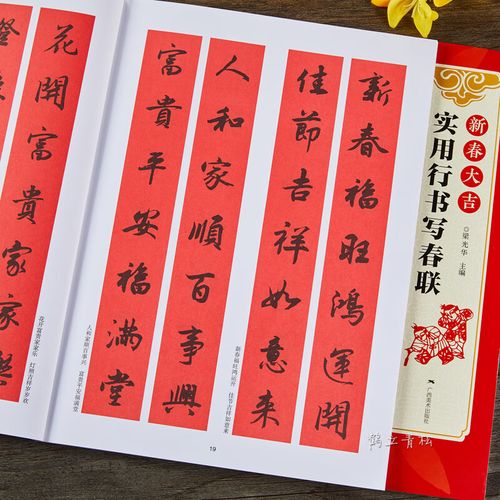 新春福旺鴻運開
佳節吉祥如意来
新春福旺鸿运开 佳节吉祥如意来
人和家順百事興
富貴平安福滿堂
人和家顺百事兴 富贵平安福满堂
花開富貴家家樂
花开富贵家家乐 灯照吉祥岁岁欢
19
新春大吉
实用行书写春联
◎梁光华 主编
广西美术出版社
鹤立青松